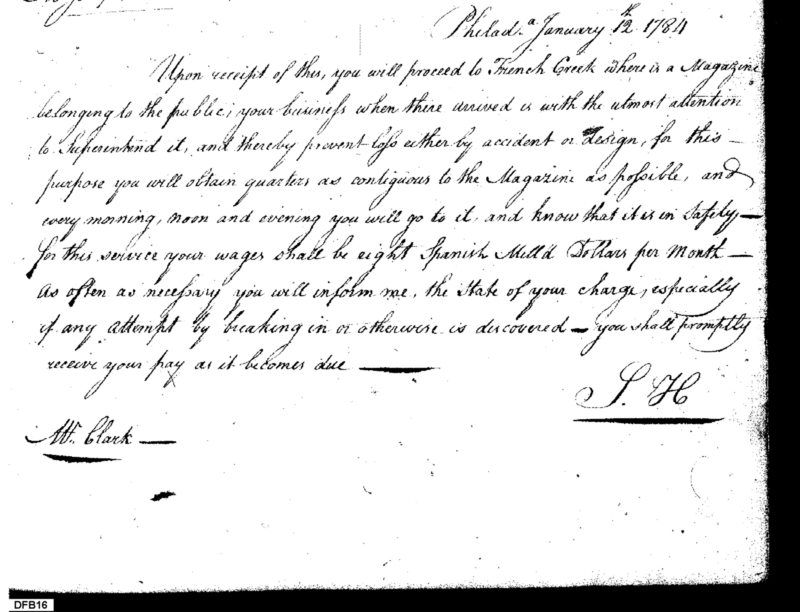 Philad.a January 12th 1784
Upon receipt of this, you will proceed to French Creek where is a Magazine
belonging to the public; your business when there arrived is with the utmost attention
to Superintend it, and thereby prevent loss either by accident or design, for this
purpose you will obtain quarters as contiguous to the Magazine as possible, and
every morning, noon and evening you will go to it, and know that it is in Safety —
for this service your wages shall be eight Spanish Mill'd Dollars per Month —
As often as necessary you will inform me, the State of your charge, especially
if any attempt by breaking in or otherwise is discovered — you shall promptly
receive your pay as it becomes due —
S. H
Mr. Clark —
DFB16